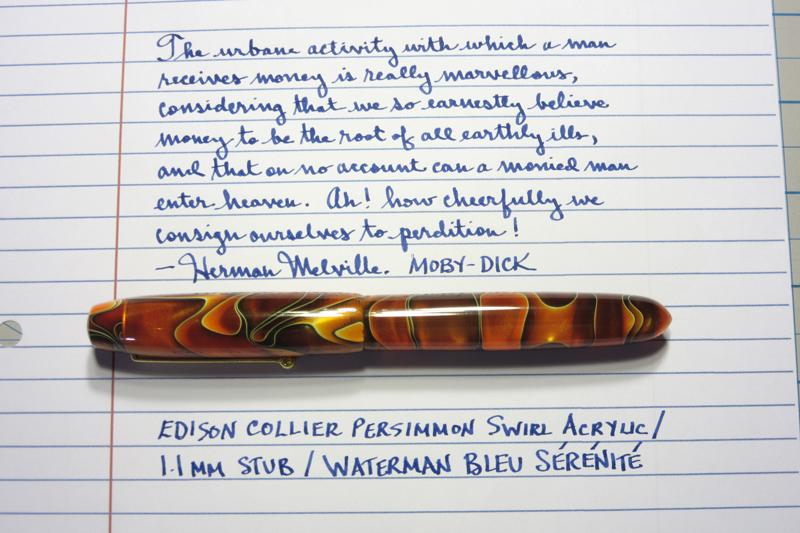 The urbane activity with which a man
receives money is really marvellous,
considering that we so earnestly believe
money to be the root of all earthly ills,
and that on no account can a monied man
enter heaven. Ah! how cheerfully we
consign ourselves to perdition!
— Herman Melville. MOBY-DICK
EDISON COLLIER PERSIMMON SWIRL ACRYLIC /
1.1 MM STUB / WATERMAN BLEU SÉRÉNITÉ